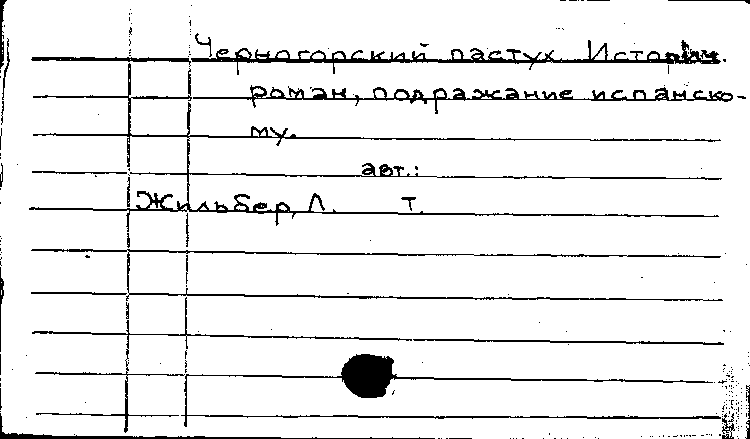 Черногорский пастух. Историч.
роман, подражание испанско-
му.
авт.:
Жильбер, Л. Т.